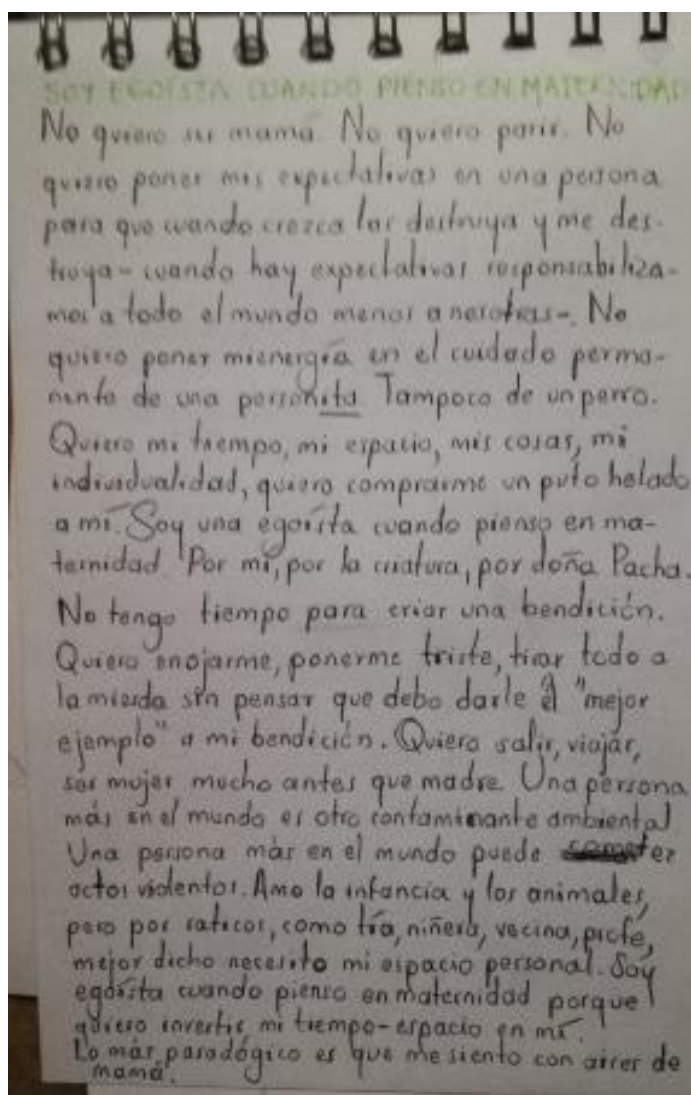 SOY EGOÍSTA CUANDO PIENSO EN MATERNIDAD
No quiero ser mamá. No quiero parir. No
quiero poner mis expectativas en una persona
para que cuando crezca las destruya y me des-
truya - cuando hay expectativas responsabiliza-
mos a todo el mundo menos a nosotras -. No
quiero poner mi energía en el cuidado perma-
nente de una personita. Tampoco de un perro.
Quiero mi tiempo, mi espacio, mis cosas, mi
individualidad, quiero comprarme un puto helado
a mí. Soy una egoísta cuando pienso en ma-
ternidad. Por mí, por la criatura, por doña Pacha.
No tengo tiempo para criar una bendición.
Quiero enojarme, ponerme triste, tirar todo a
la mierda sin pensar que debo darle el "mejor
ejemplo" a mi bendición. Quiero salir, viajar,
ser mujer mucho antes que madre. Una persona
más en el mundo es otro contaminante ambiental
Una persona más en el mundo puede
actos violentos. Amo la infancia y los animales,
pero por raticos, como tía, niñera, vecina, profe,
mejor dicho necesito mi espacio personal. Soy
egoísta cuando pienso en maternidad porque
quiero invertir mi tiempo-espacio en mí.
Lo más paradógico es que me siento con aires de
mamá.